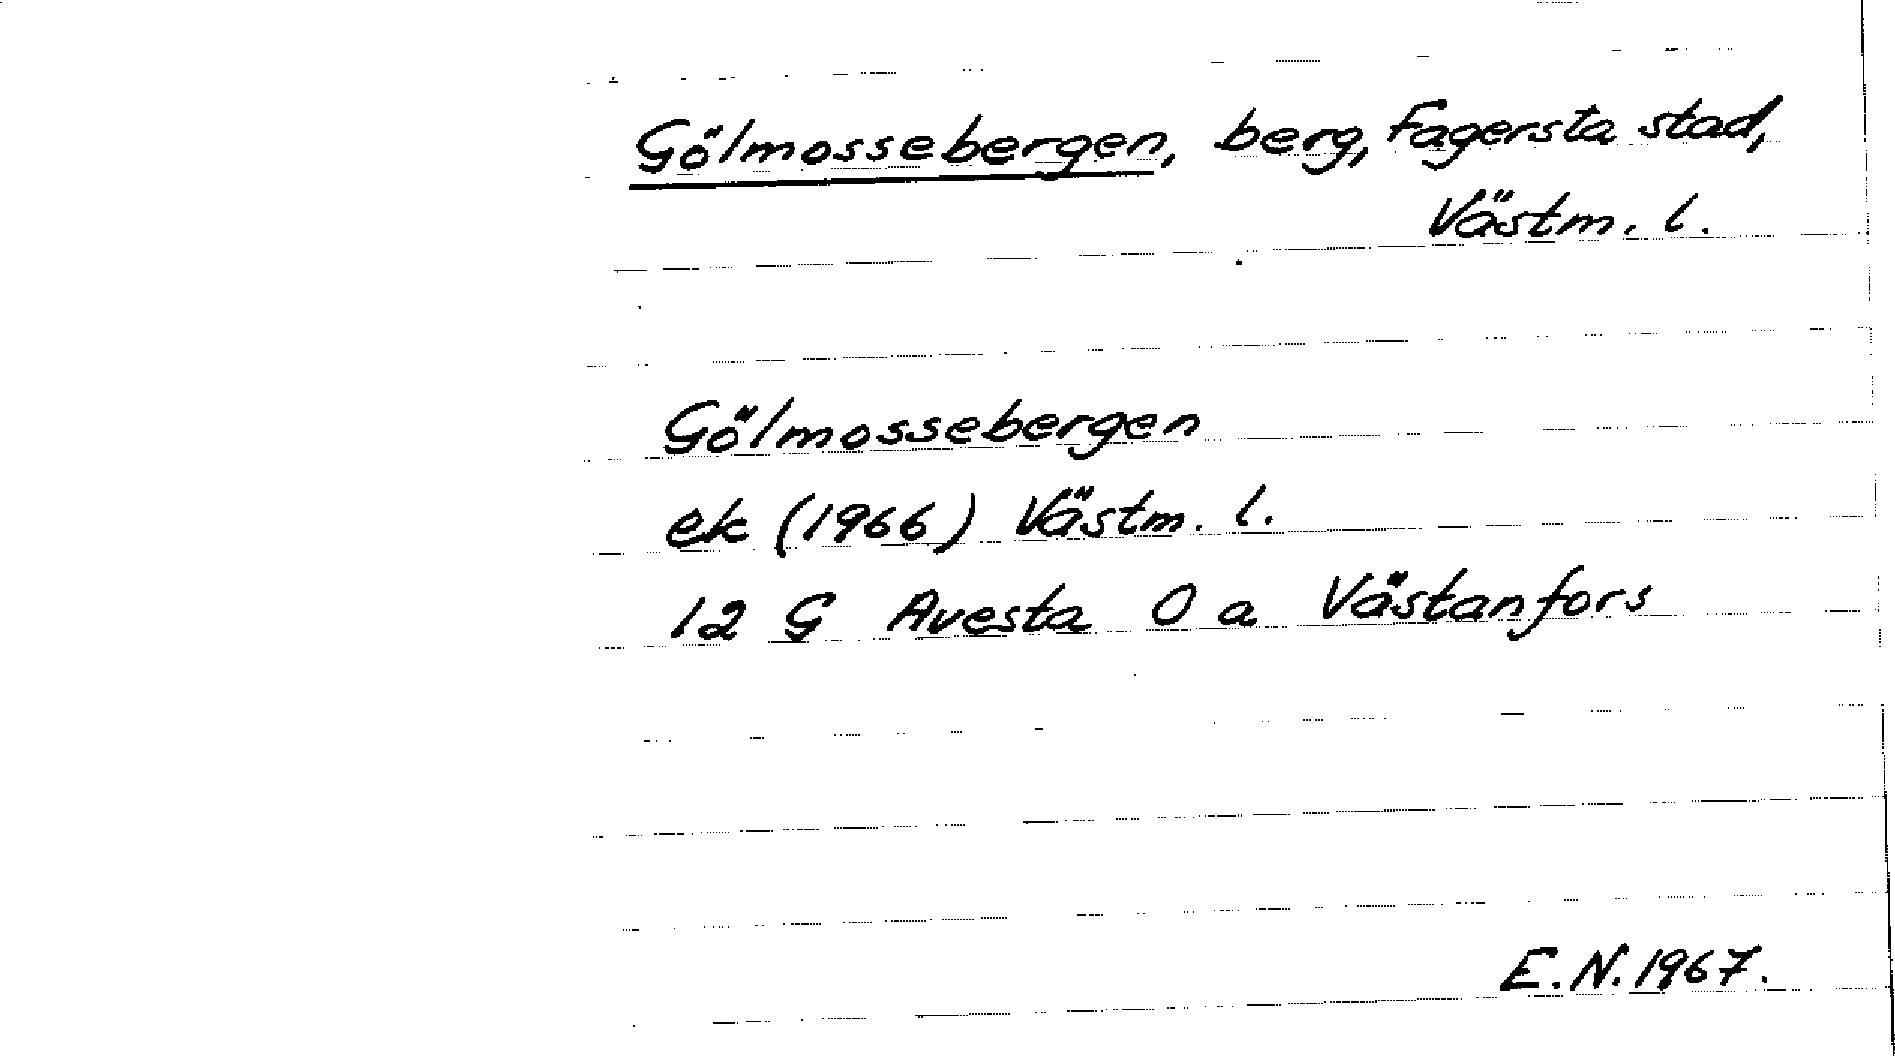 Gölmossebergen, berg, Fagersta stad,
Västm. l.
Gölmossebergen
ek (1966) Västm. l.
12 G Avesta O a Västanfors
E.N. 1967.